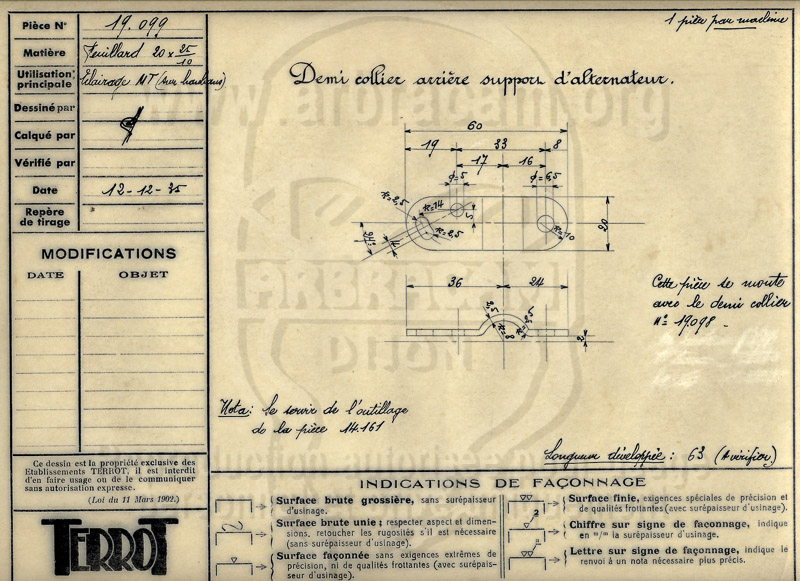 Pièce N° 19.099
Matière Feuillard 20 x 25/10
Utilisation principale Eclairage MT (sur haubans)
Dessiné par
Calqué par
Vérifié par
Date 12-12-35
Repère de tirage
MODIFICATIONS
DATE OBJET
Ce dessin est la propriété exclusive des
Etablissements TERROT, il est interdit
d'en faire usage ou de le communiquer
sans autorisation expresse.
(Loi du 11 Mars 1902.)
TERROT
1 pièce par machine
Demi collier arrière support d'alternateur.
60
19 33 8
17 16
φ=5 φ=6,5
R=2,5 R=14 5 20
24° 4 R=2,5 R=10
36 24
2,5 R=8 2
Cette pièce se monte
avec le demi collier
N° 19.098 –
Nota: Se servir de l'outillage
de la pièce 14.161
Longueur développée : 63 (A vérifier)
INDICATIONS DE FAÇONNAGE
Surface brute grossière, sans surépaisseur
d'usinage.
Surface brute unie; respecter aspect et dimen-
sions, retoucher les rugosités s'il est nécessaire
(sans surépaisseur d'usinage).
Surface façonnée sans exigences extrêmes de
précision, ni de qualités frottantes (avec surépais-
seur d'usinage).
Surface finie, exigences spéciales de précision et
de qualités frottantes (avec surépaisseur d'usinage).
Chiffre sur signe de façonnage, indique
en m/m la surépaisseur d'usinage.
Lettre sur signe de façonnage, indique le
renvoi à un nota nécessaire plus précis.
ARBRACAM
DIJON